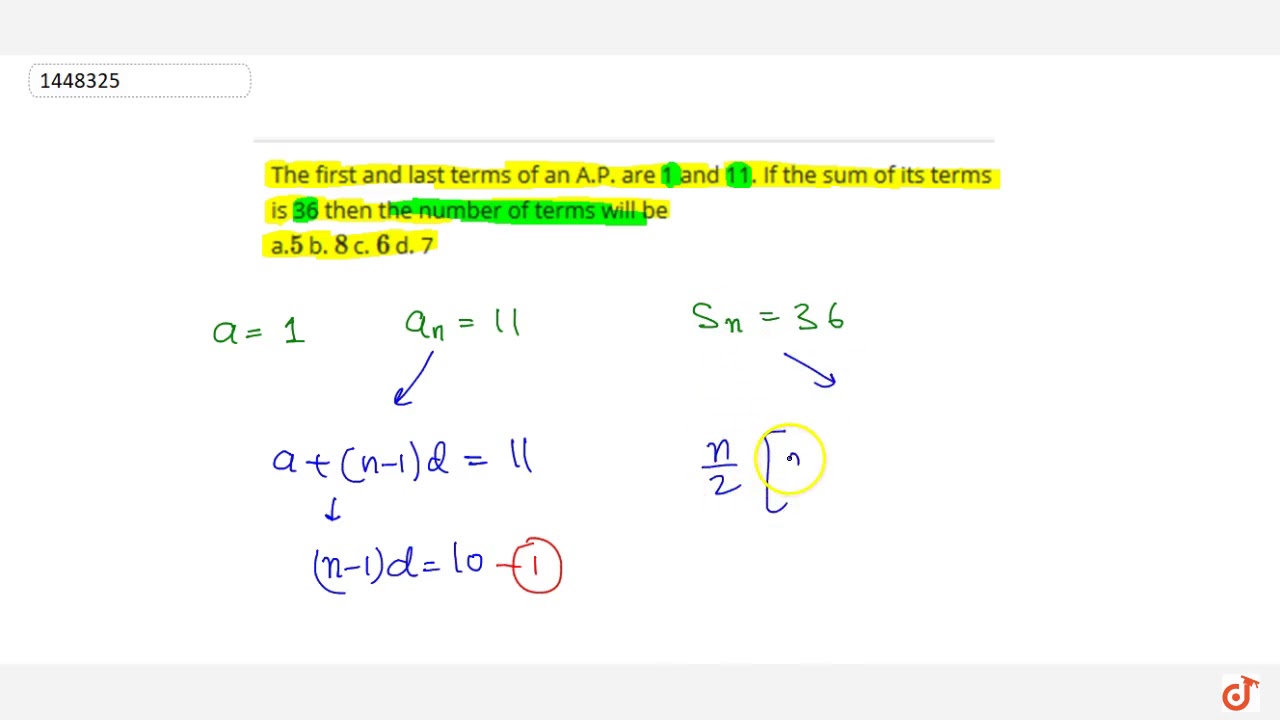 1448325
The first and last terms of an A.P. are 1 and 11. If the sum of its terms
is 36 then the number of terms will be
a.5 b. 8 c. 6 d. 7
a = 1 aₙ = 11 Sₙ = 36
a + (n-1)d = 11
n/2 [
(n-1)d = 10 - ①